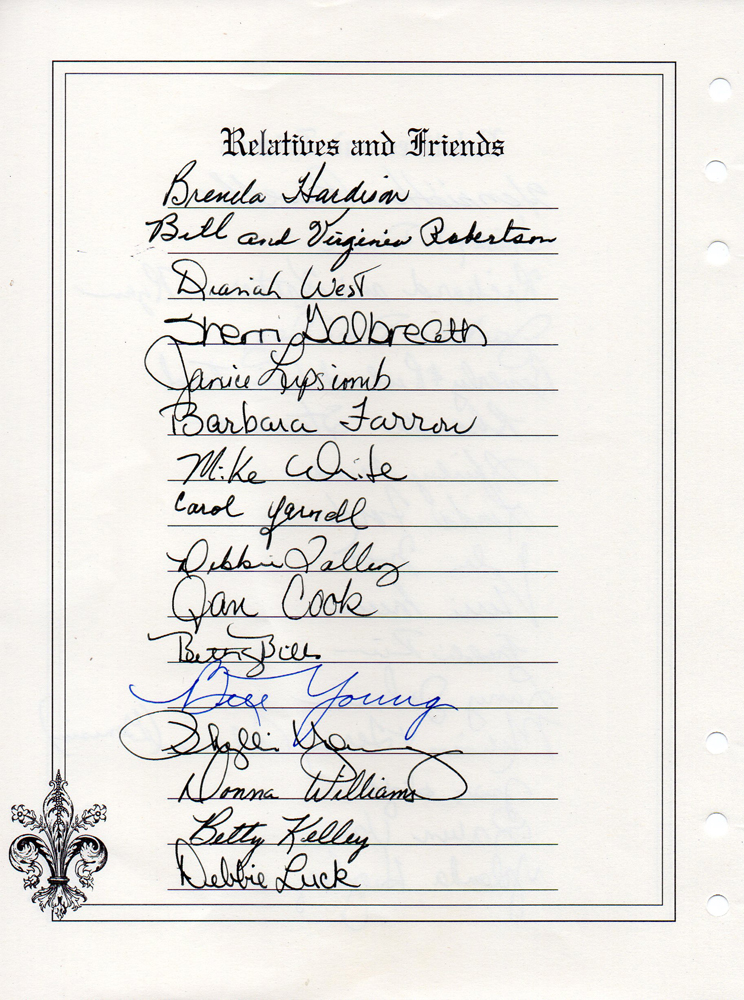 Relatives and Friends
Brenda Hardison
Bill and Virginia Robertson
Dianah West
Sherri Galbreath
Janice Lipscomb
Barbara Farrow
Mike White
Carol Yarnell
Debbie Talley
Jan Cook
Betty Bills
Bill Young
Phyllis Young
Donna Williams
Betty Kelley
Debbie Luck